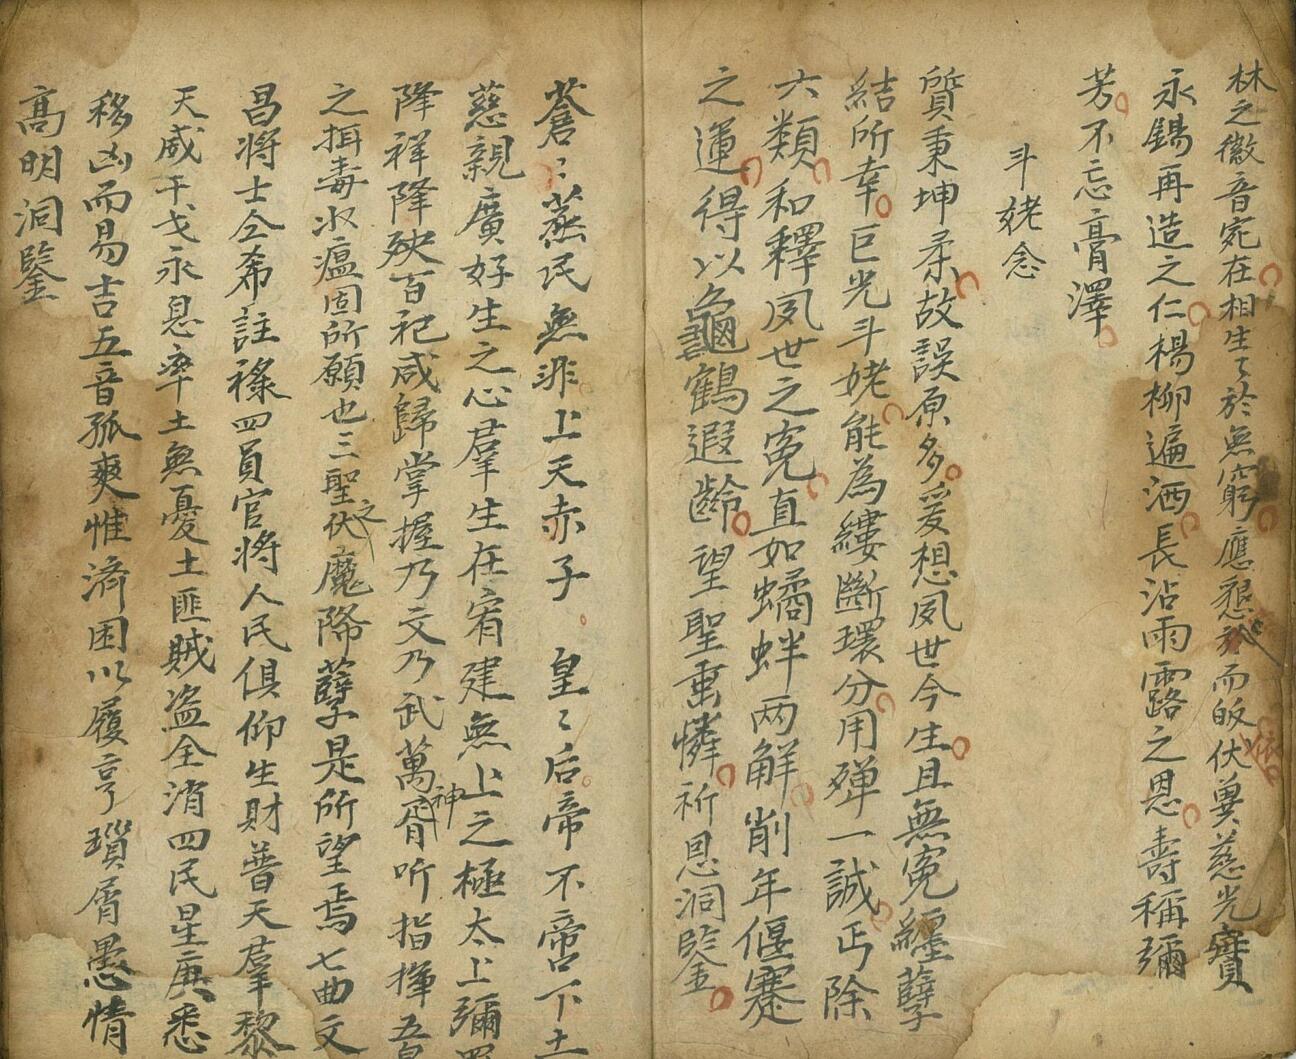 林之徽音宛在相生〻於無窮應懇求而皈伏奠慈光寶
永錫再造之仁楊柳遍洒長沾雨露之恩壽稱彌
芳不忘膏澤
斗姥念
質秉坤柔故誤原多爰想夙世今生且無冤纏孽
結所幸巨光斗姥能為縷斷環分用殫一誠丐除
六類和釋夙世之冤直如蟠蚌兩解削年偃蹇
之運得以龜鶴遐齡望聖垂憐祈恩洞鑒
蒼〻蒸民無非上天赤子皇〻后帝不啻下土
慈親廣好生之心羣生在宥建無上之極太上彌
降祥降殃百祀咸歸掌握乃文乃武萬神胥听指揮五
之揖毒收瘟固所願也三聖之伏魔降孽是所望焉七曲文
昌將士仝希註祿四員官將人民俱仰生財普天羣黎
天威干戈永息率土無憂土匪賊盗全消四民星庚悉
移凶而易吉五音孤爽惟濟困以履亨瑣屑愚情
高明洞鑒